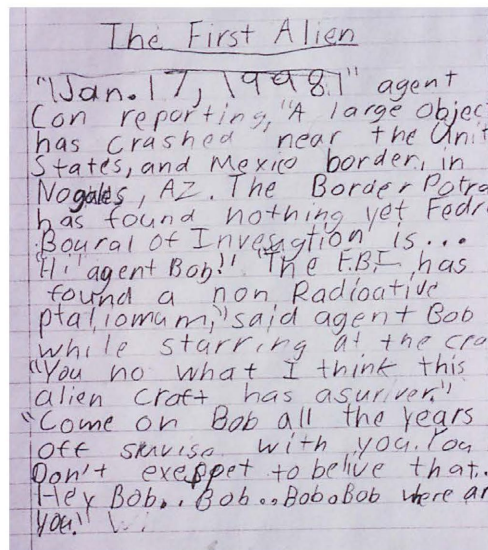 The First Alien
"Jan. 17, 1998" agent
Con reporting, "A large Objec
has crashed near the Unit
States, and Mexico border, in
Nogales, AZ. The Border Potra
has found nothing yet Fedr
Boural of Invesgtion is...
"Hi" agent Bob!" "The F.B.I has
found a non Radioative
ptaliomum," said agent Bob
while starring at the cra
"You no what I think this
alien craft has asuriver."
"Come on Bob all the years
off with you. You
Don't exeppet to belive that.
Hey Bob.. Bob.. Bob. Bob where ar
you."